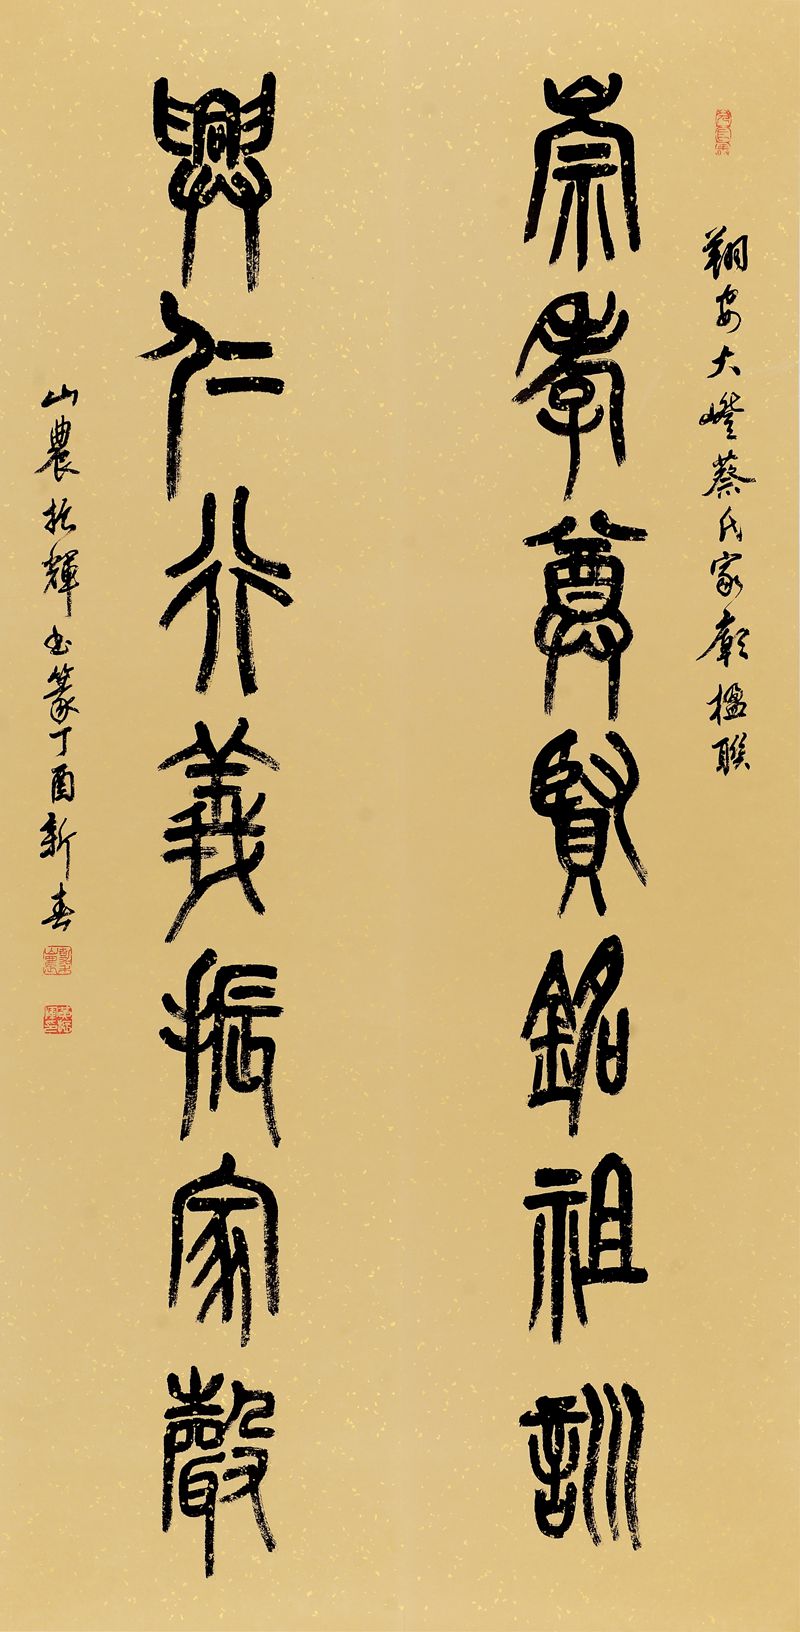 翔安大嶝蔡氏家廟楹聯
崇孝尊賢銘祖訓
興仁行義振家聲
山農振輝書篆丁酉新春